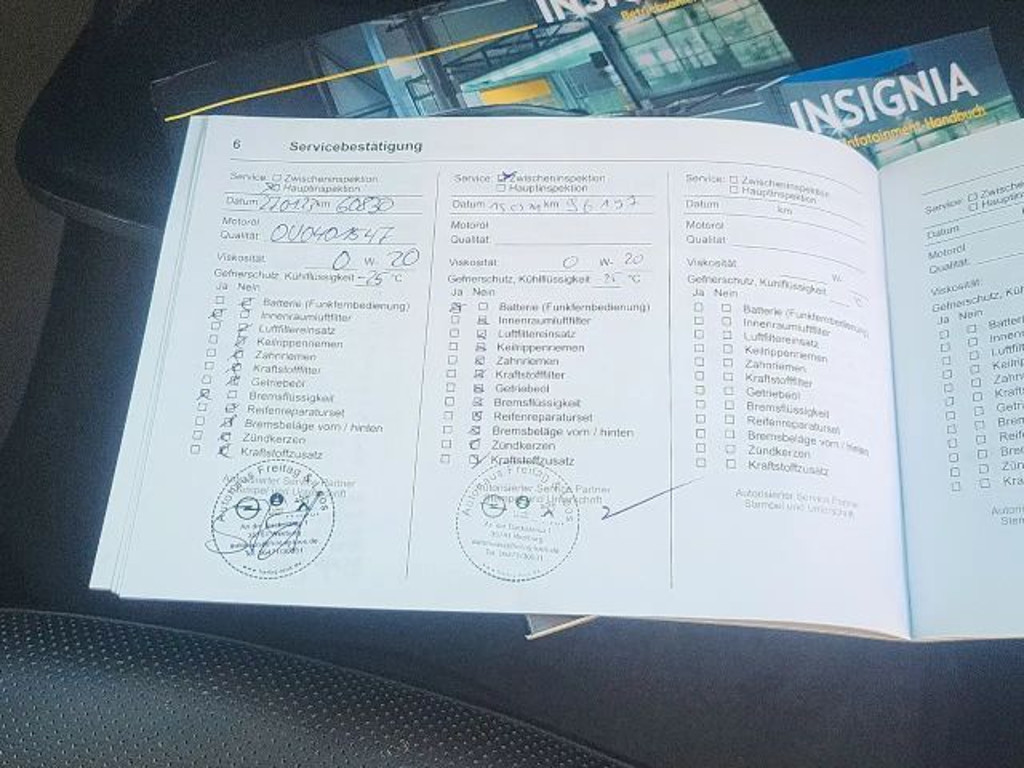 INSIGNIA
Infotainment-Handbuch
6 Servicebestätigung
Service: Zwischeninspektion
Hauptinspektion
Datum km 60830
Motoröl
Qualität: OV0401547
Viskosität: 0 W- 20
Gefrierschutz, Kühlflüssigkeit -25 °C
Ja Nein
Batterie (Funkfernbedienung)
Innenraumluftfilter
Luftfiltereinsatz
Keilrippenriemen
Zahnriemen
Kraftstofffilter
Getriebeöl
Bremsflüssigkeit
Reifenreparaturset
Bremsbeläge vorn / hinten
Zündkerzen
Kraftstoffzusatz
Autorisierter Service Partner
Stempel und Unterschrift
Autohaus Freitag
Service: Zwischeninspektion
Hauptinspektion
Datum km 96197
Motoröl
Qualität:
Viskosität: 0 W- 20
Gefrierschutz, Kühlflüssigkeit °C
Ja Nein
Batterie (Funkfernbedienung)
Innenraumluftfilter
Luftfiltereinsatz
Keilrippenriemen
Zahnriemen
Kraftstofffilter
Getriebeöl
Bremsflüssigkeit
Reifenreparaturset
Bremsbeläge vorn / hinten
Zündkerzen
Kraftstoffzusatz
Autorisierter Service Partner
Stempel und Unterschrift
Autohaus Freitag
Service: Zwischeninspektion
Hauptinspektion
Datum km
Motoröl
Qualität:
Viskosität: W-
Gefrierschutz, Kühlflüssigkeit °C
Ja Nein
Batterie (Funkfernbedienung)
Innenraumluftfilter
Luftfiltereinsatz
Keilrippenriemen
Zahnriemen
Kraftstofffilter
Getriebeöl
Bremsflüssigkeit
Reifenreparaturset
Bremsbeläge vorn / hinten
Zündkerzen
Kraftstoffzusatz
Autorisierter Service Partner
Stempel und Unterschrift
Service:
Datum
Motoröl
Qualität:
Viskosität:
Ja Nein